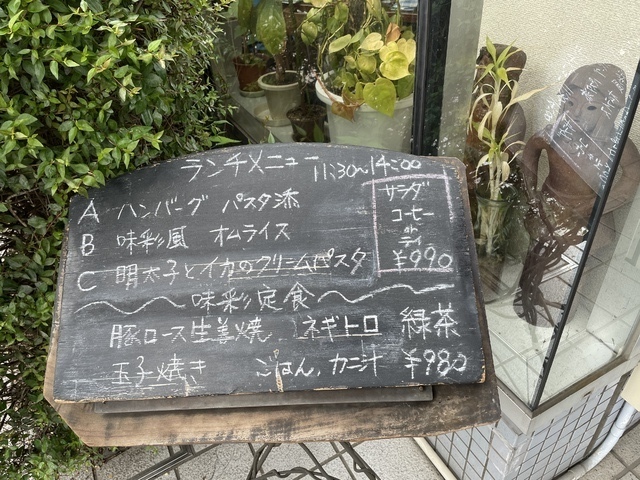 ランチメニュー 11:30〜14:00
A ハンバーグ パスタ添
B 味彩風 オムライス
C 明太子とイカのクリームパスタ
サラダ
コーヒー
or
ティ
¥990
味彩定食
豚ロース生姜焼 ネギトロ 緑茶
玉子焼き ごはん,カニ汁 ¥980